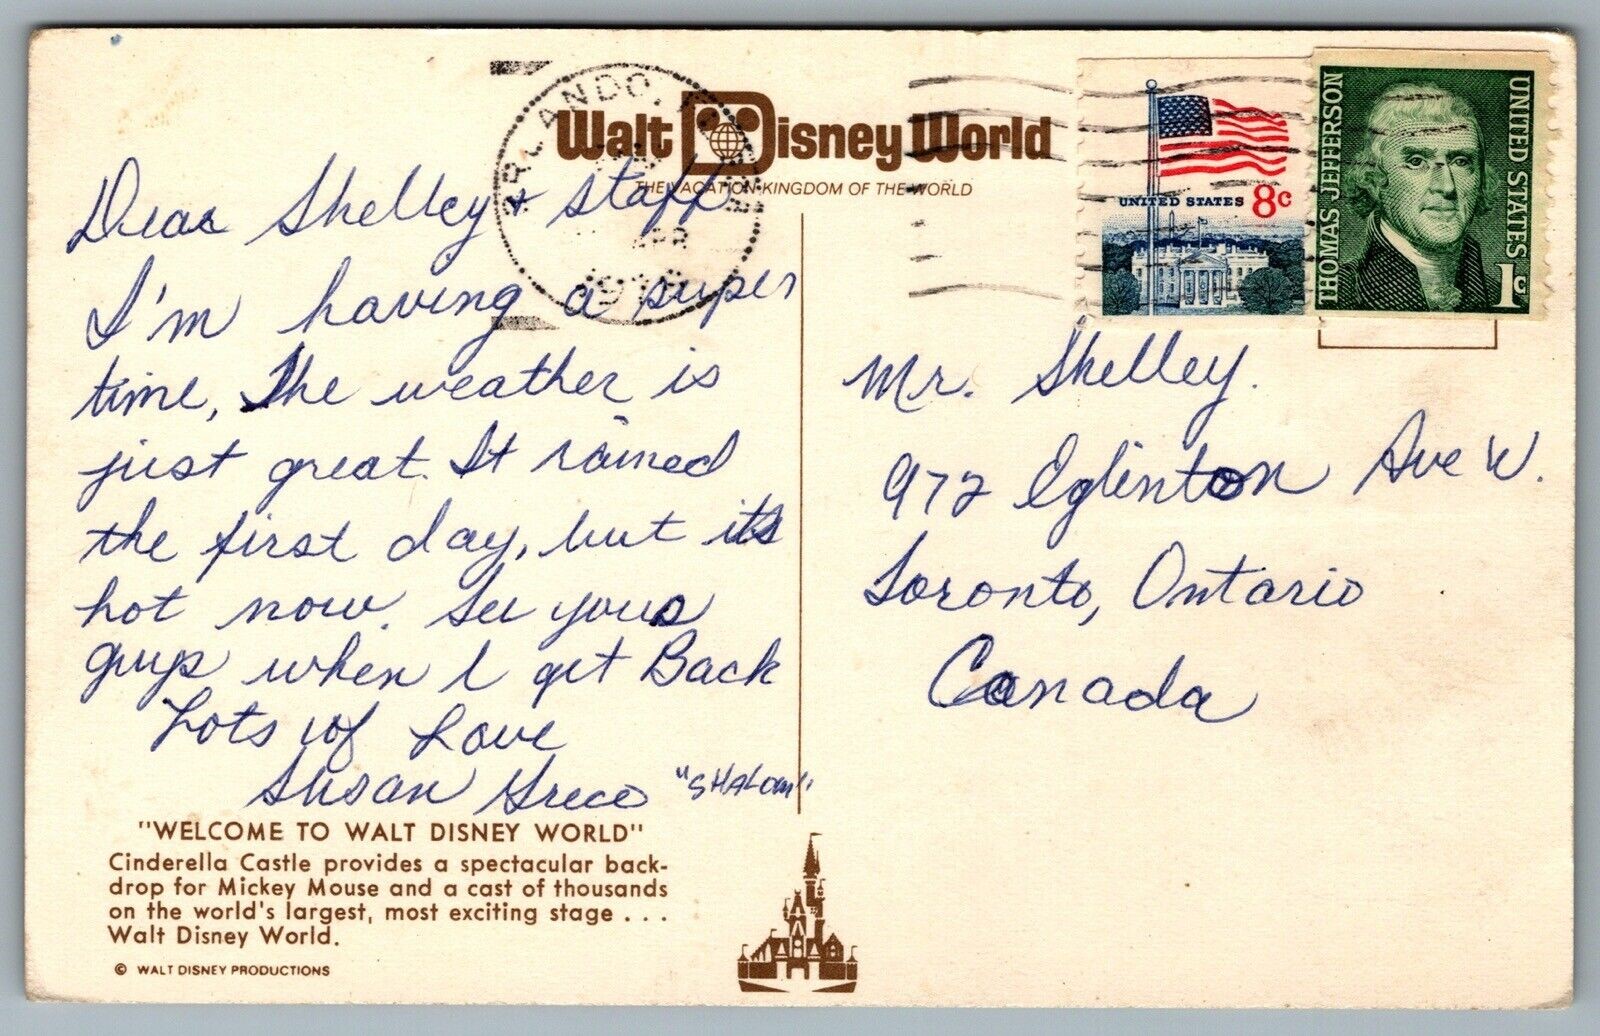 Walt Disney World
THE VACATION KINGDOM OF THE WORLD
ORLANDO,
APR
UNITED STATES 8c
THOMAS JEFFERSON
UNITED STATES
1c
Dear Shelley + Staff
I'm having a super
time, The weather is
just great. It rained
the first day, but its
hot now. See yous
guys when I get Back
Lots of Love
Susan Greco "SHALOM"
Mr. Shelley.
972 Eglinton Ave W.
Toronto, Ontario
Canada
"WELCOME TO WALT DISNEY WORLD"
Cinderella Castle provides a spectacular back-
drop for Mickey Mouse and a cast of thousands
on the world's largest, most exciting stage . . .
Walt Disney World.
© WALT DISNEY PRODUCTIONS